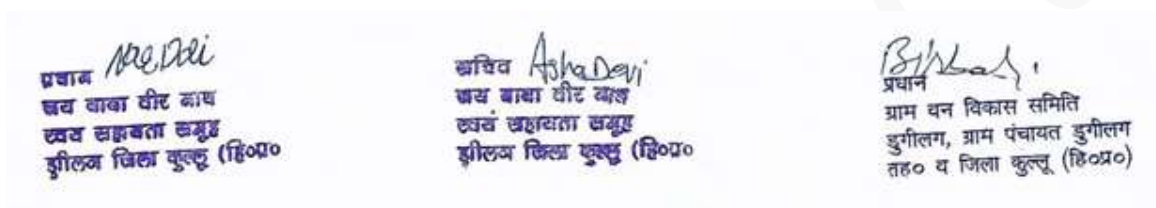 प्रधान
जय बाबा वीर नाथ
स्वयं सहायता समूह
झीलन जिला कुल्लू (हि०प्र०
सचिव Asha Devi
जय बाबा वीर नाथ
स्वयं सहायता समूह
झीलन जिला कुल्लू (हि०प्र०
प्रधान
ग्राम वन विकास समिति
डुगीलग, ग्राम पंचायत डुगीलग
तह० व जिला कुल्लू (हि०प्र०)